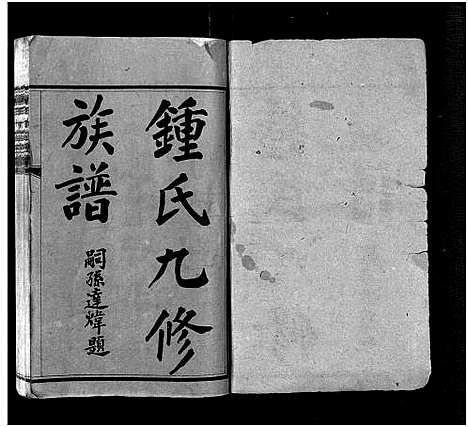 鍾氏九修
族譜
嗣孫達煒題